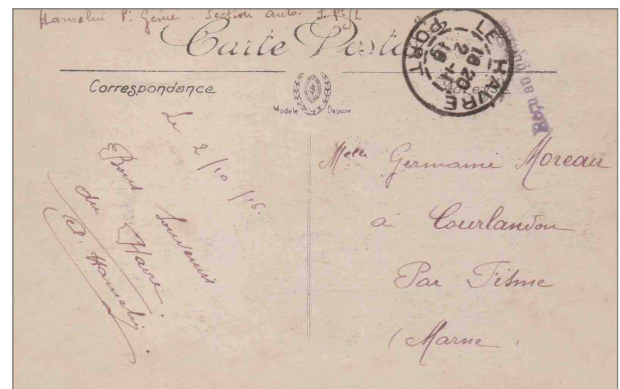 Hamelin 1er Génie. Section auto.
Carte Postale
Correspondance
Modèle Déposé
LE HAVRE
PORT
16 20
2 -
16
Reçu au
Le 2/10/16.
Bons Souvenirs
du Havre.
Melle Germaine Moreau
à Courlandon
Par Fisme
(Marne)